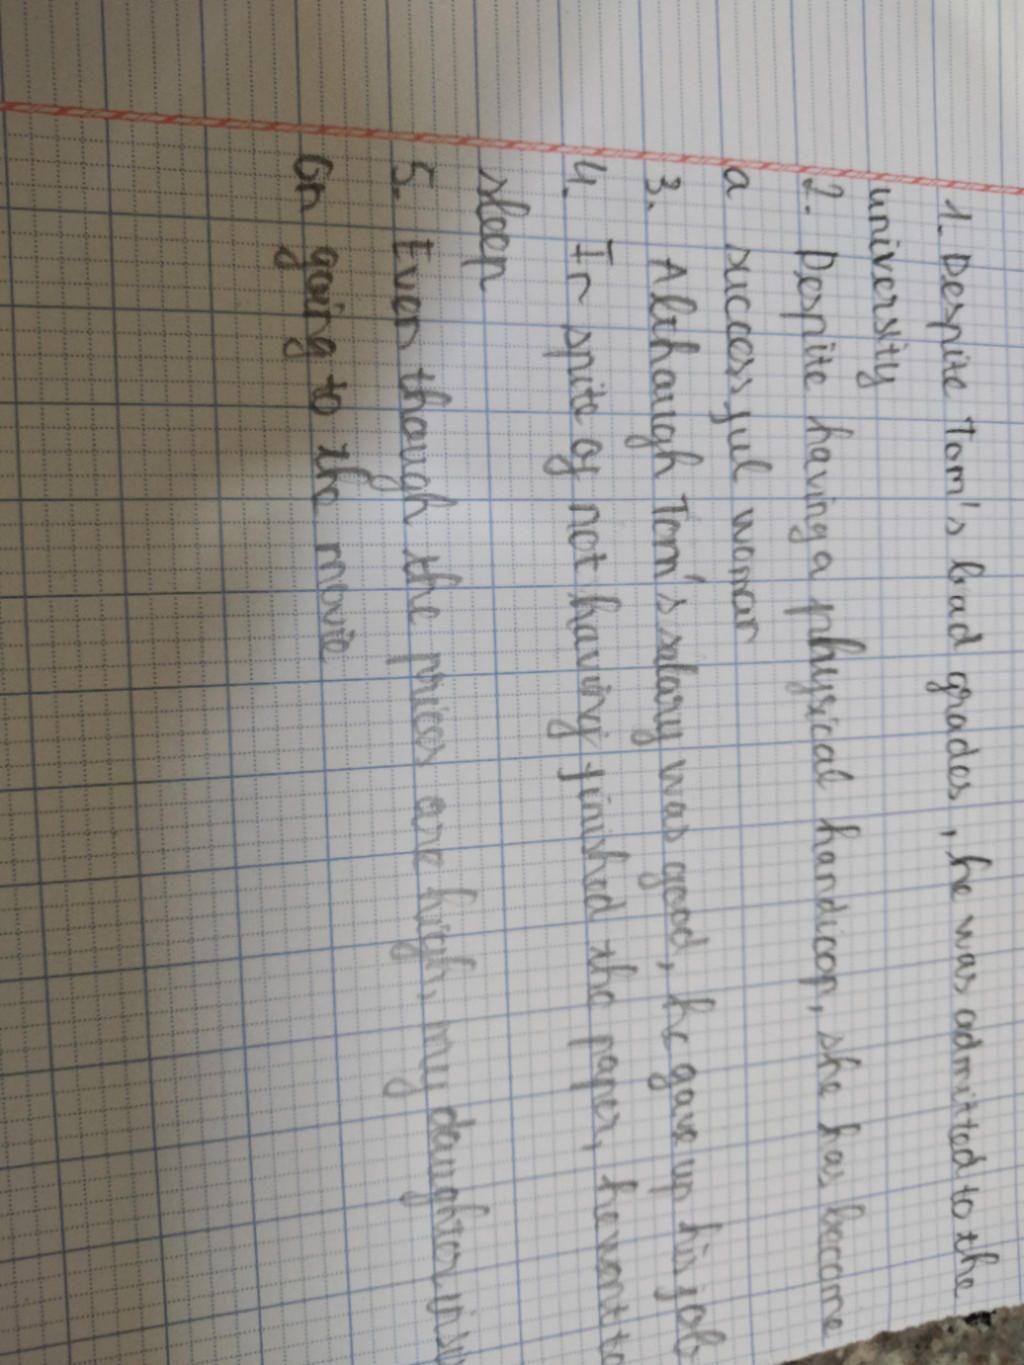 1. Despite Tom's bad grades, he was admitted to the
university
2. Despite having a physical handicap, she has become
a successful woman
3. Although Tom's salary was good, he gave up his job
4. In spite of not having finished the paper, he went to
sleep
5. Even though the prices are high, my daughter
on going to the movie